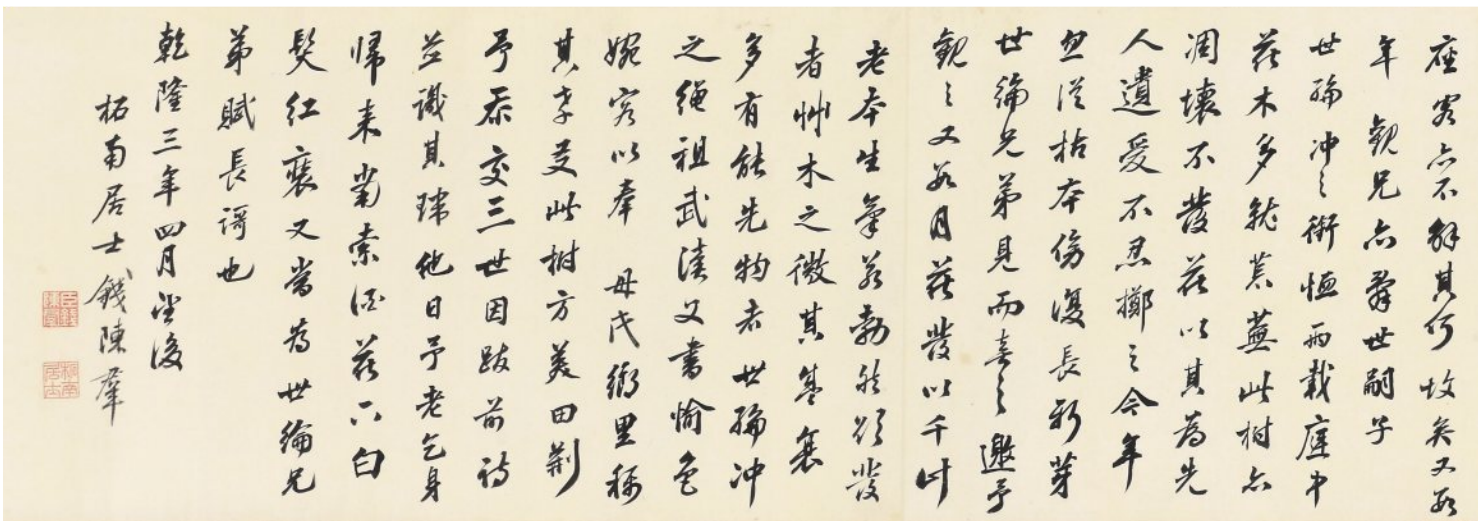 座客亦不解其何故矣又數
年 觀兄亦棄世嗣子
世綸冲之銜恤兩載庭中
花木多就荒蕪此樹亦
凋壞不發花以其為先
人遺愛不忍擲之今年
忽從枯本傍復長新芽
世綸兄弟見而喜之邀予
觀之又數月花發以千計
老本生氣若勃然欲發
者艸木之微其盛衰
多有能先物者世綸冲
之繩祖武讀父書愉色
婉容以奉 母氏鄉里稱
其孝友此樹方美田荊
予忝交三世因跋前詩
並識其瑞他日予老乞身
歸來當索酒花下白
髮紅裳又當為世綸兄
弟賦長謌也
乾隆三年四月望後
柘南居士錢陳羣
臣錢陳羣
柘南居士